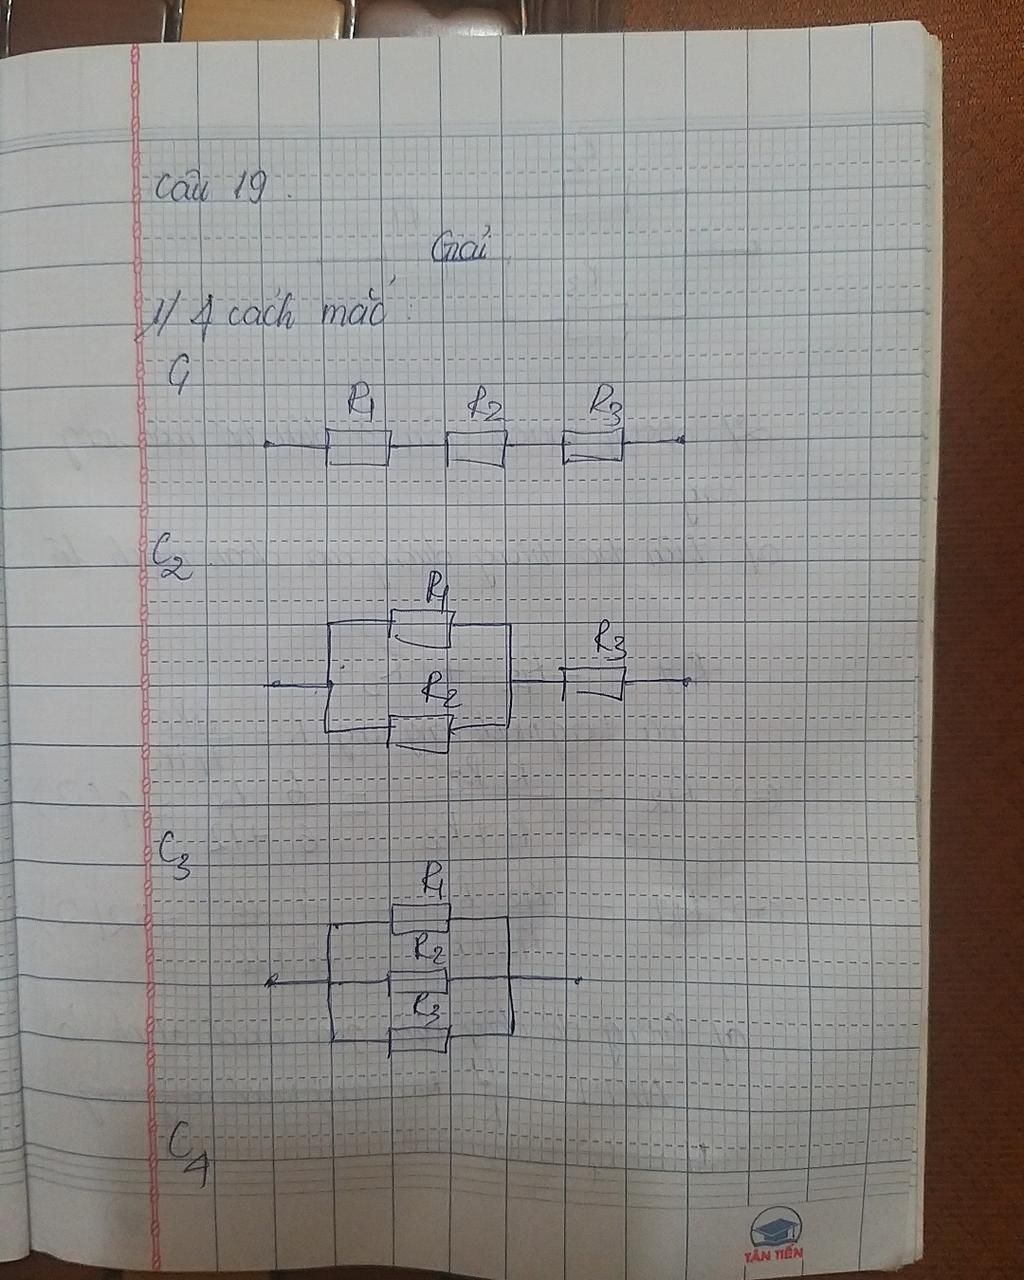 Câu 19.
Giải
1/ 4 cách mắc :
C1
R1 R2 R3
C2
R1
R3
R2
C3
R1
R2
R3
C4
TÂN TIẾN